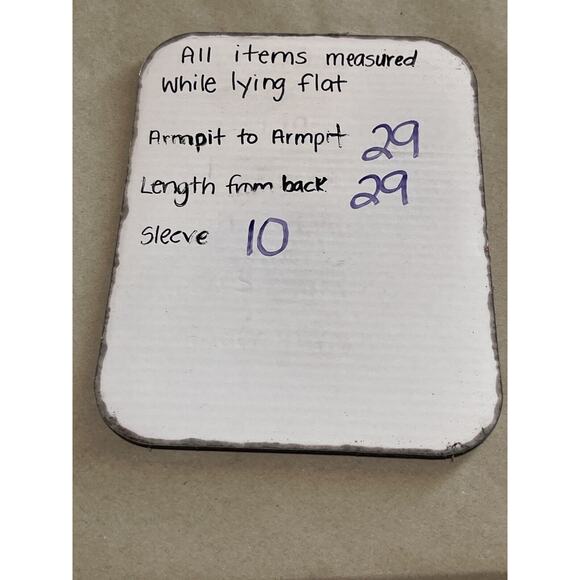 All items measured
while lying flat
Armpit to Armpit 29
Length from back 29
Sleeve 10